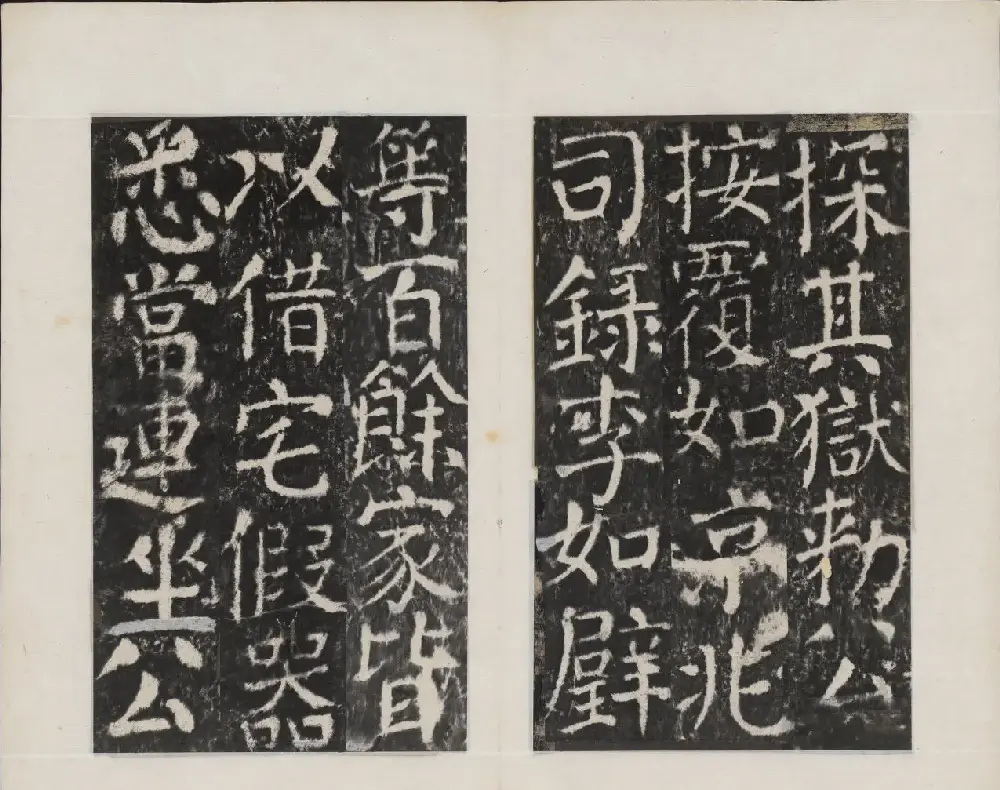 探其獄勑公
按覆如京兆
司錄李如璧
等百餘家皆
以借宅假器
悉當連坐公